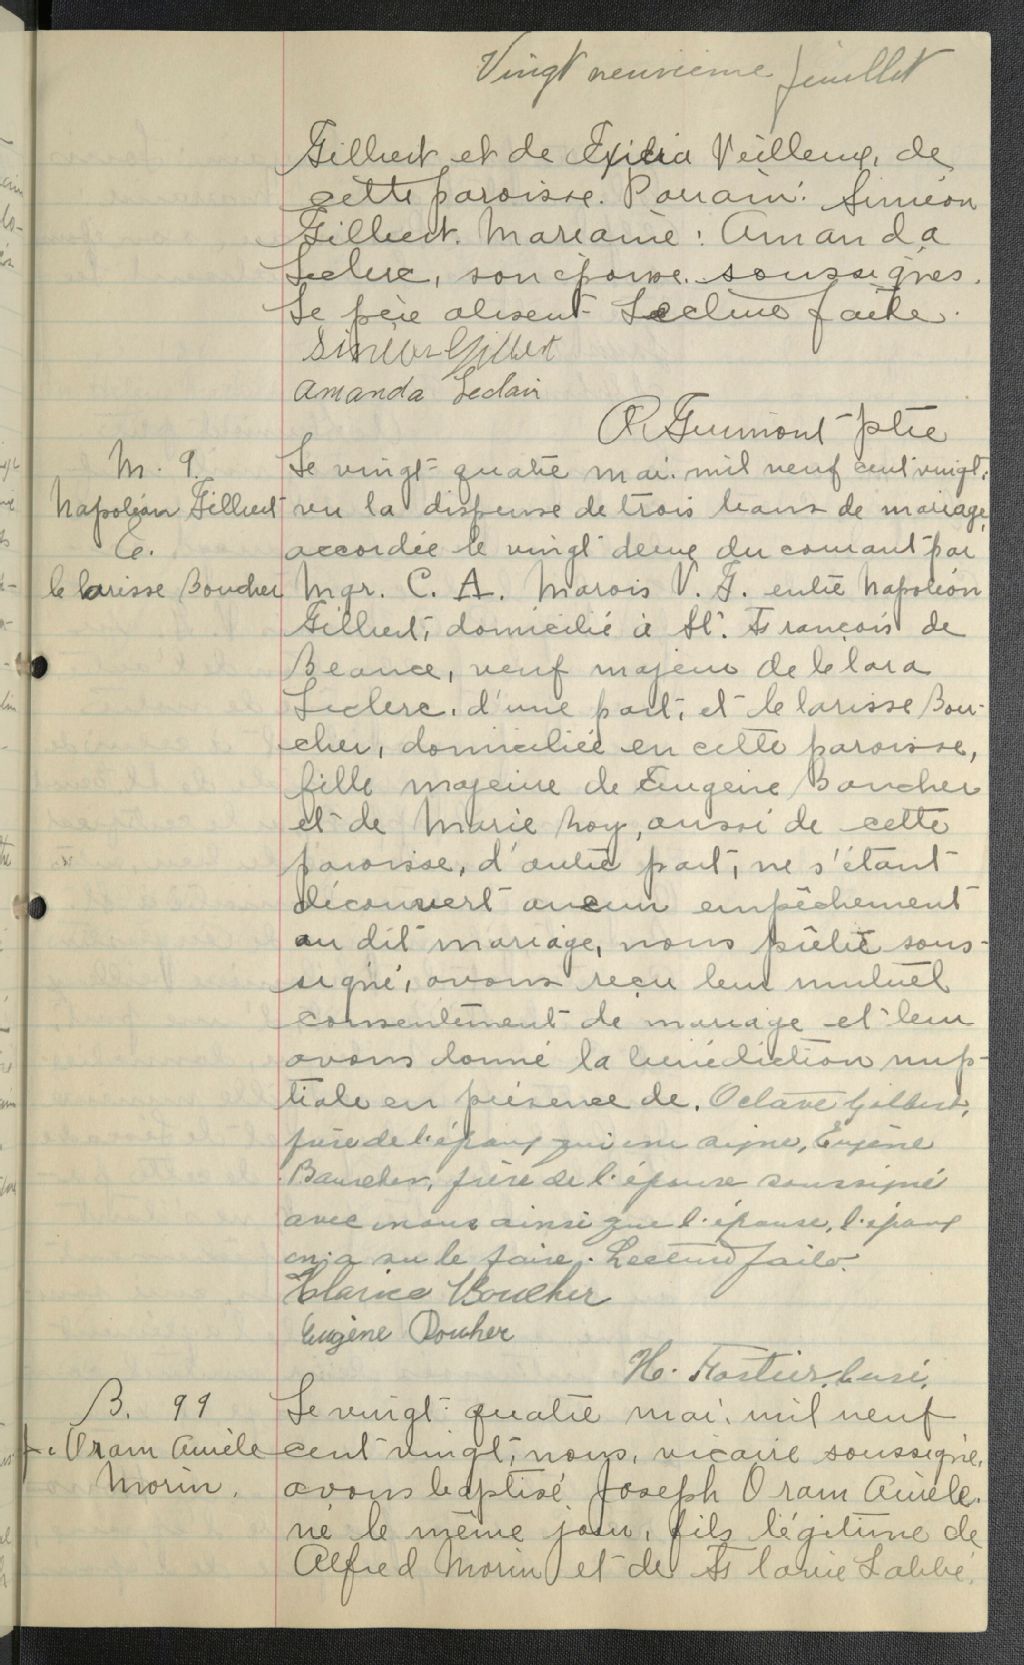 Vingt neuvième feuillet
Gilbert et de Exilia Veilleux, de
cette paroisse. Parrain: Siméon
Gilbert. Marraine: Amanda
Leclerc, son épouse. soussignés.
Le père absent. Lecture faite.
Siméon Gilbert
Amanda Leclair
Guimont ptre
M. 9.
Napoléon Gilbert
&.
Clarisse Boucher
Le vingt quatre mai mil neuf cent vingt,
vu la dispense de trois bans de mariage
accordée le vingt deux du courant par
Mgr. C. A. Marois V. G. entre Napoléon
Gilbert, domicilié à St. François de
Beauce, veuf majeur de Clara
Leclerc, d'une part, et Clarisse Bou-
cher, domiciliée en cette paroisse,
fille majeure de Eugène Boucher
et de Marie Roy, aussi de cette
paroisse, d'autre part, ne s'étant
découvert aucun empêchement
au dit mariage, nous prêtre sous-
signé, avons reçu leur mutuel
consentement de mariage et leur
avons donné la bénédiction nup-
tiale en présence de, Octave Gilbert,
frère de l'époux qui ne signe, Eugène
Boucher, frère de l'épouse soussigné
avec nous ainsi que l'épouse, l'époux
n'a su le faire. Lecture faite.
Clarice Boucher
Eugène Boucher
H. Fortier, curé.
B. 99
J. Oram Aurèle
Morin.
Le vingt quatre mai, mil neuf
cent vingt, nous, vicaire soussigné,
avons baptisé Joseph Oram Aurèle,
né le même jour, fils légitime de
Alfred Morin et de Florie Labbé,